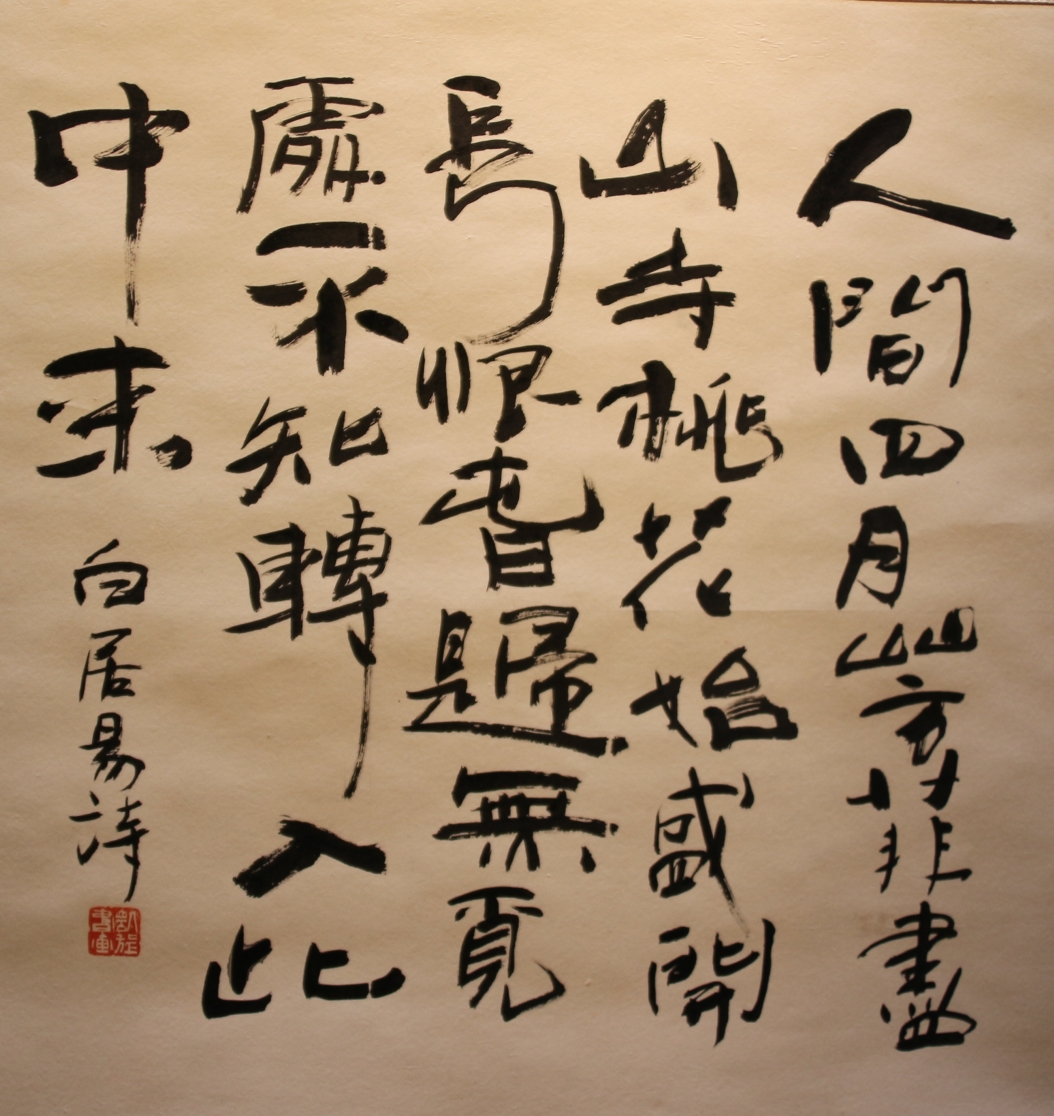 人間四月芳菲盡
山寺桃花始盛開
長恨春歸無覓
處不知轉入此
中來
白居易詩